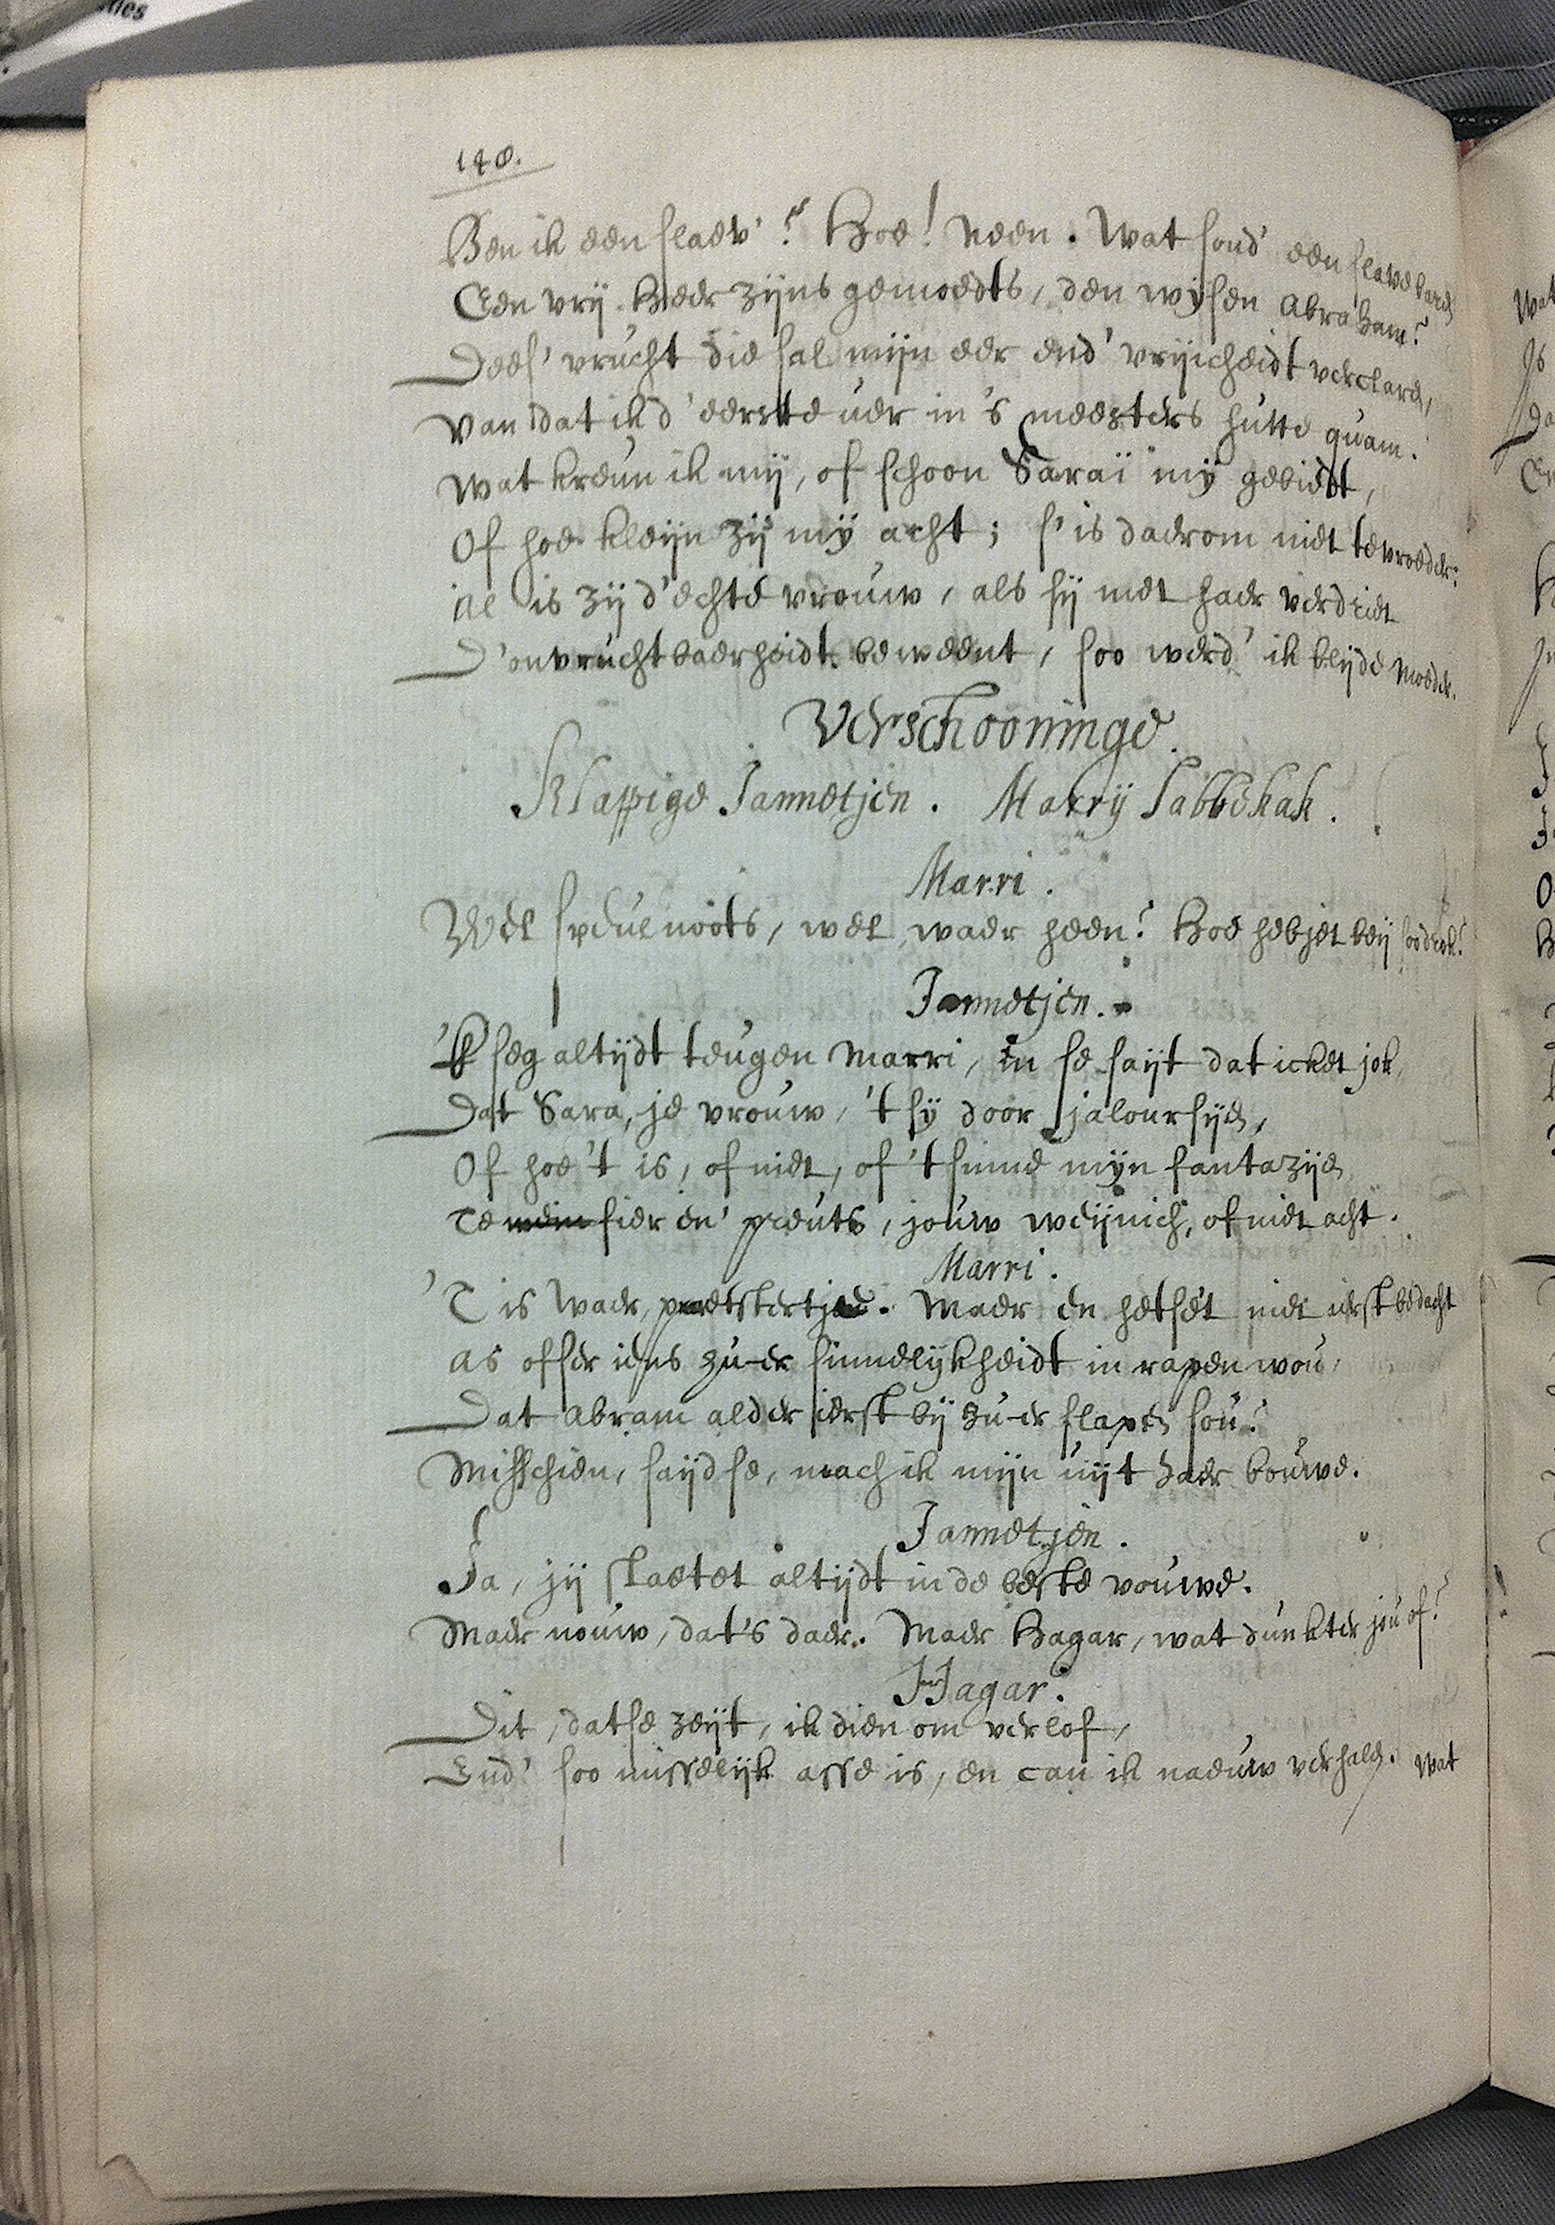 148.
Ben ik een slaev'? Hoe! Neen. Wat soud' een slave baren
Een vrij heer zijns gemoedts, den wijsen Abraham?
Dees' vrucht die sal mijn eer end' vrijicheidt verclaren,
Van dat ik d' eerste uer in 's meesters hutte quam.
Wat kreun ik mij, of schoon Saraï mij gebiedt,
Of hoe kleijn zij mij acht; s' is daerom niet te vroeder:
al is zij d' echte vrouw, als sij met haer verdriet
D' onvruchtbaerheidt beweent, soo werd' ik blijde moeder.
Verschooninge.
Klappige Jannetjen. Marrij Labbekak.
Marri.
Wel speulnoots, wel, waer heen? Hoe hebjet beij soo drok?
Jannetjen.
'k seg altijdt teugen Marri, in se saijt dat icket jok,
Dat Sara, je vrouw, 't sij door jaloursijen,
Of hoe 't is, of niet, of 't sinne mijn fantazijen
Te fier en' preuts, jouw weijnich, of niet acht.
Marri.
'T is waer, praetstertjen. Maer en hetset niet ierst bedacht
as offer iens hu-er sinnelijkheidt in rapen wou,
Dat Abram alder ierst bij hu-er slapen sou?
Misschien, saijdse, mach ik mijn uijt haer bouwe.
Jannetjen.
Ja, jij slaetet altijdt in de beste vouwe.
Maer nouw, dat's daer. Maer Hagar, wat dunkter jou of?
Hagar.
Dit, datse zeijt, ik dien om verlof,
End' soo misselijk asse is, en can ik naeuw verhalen. Wat